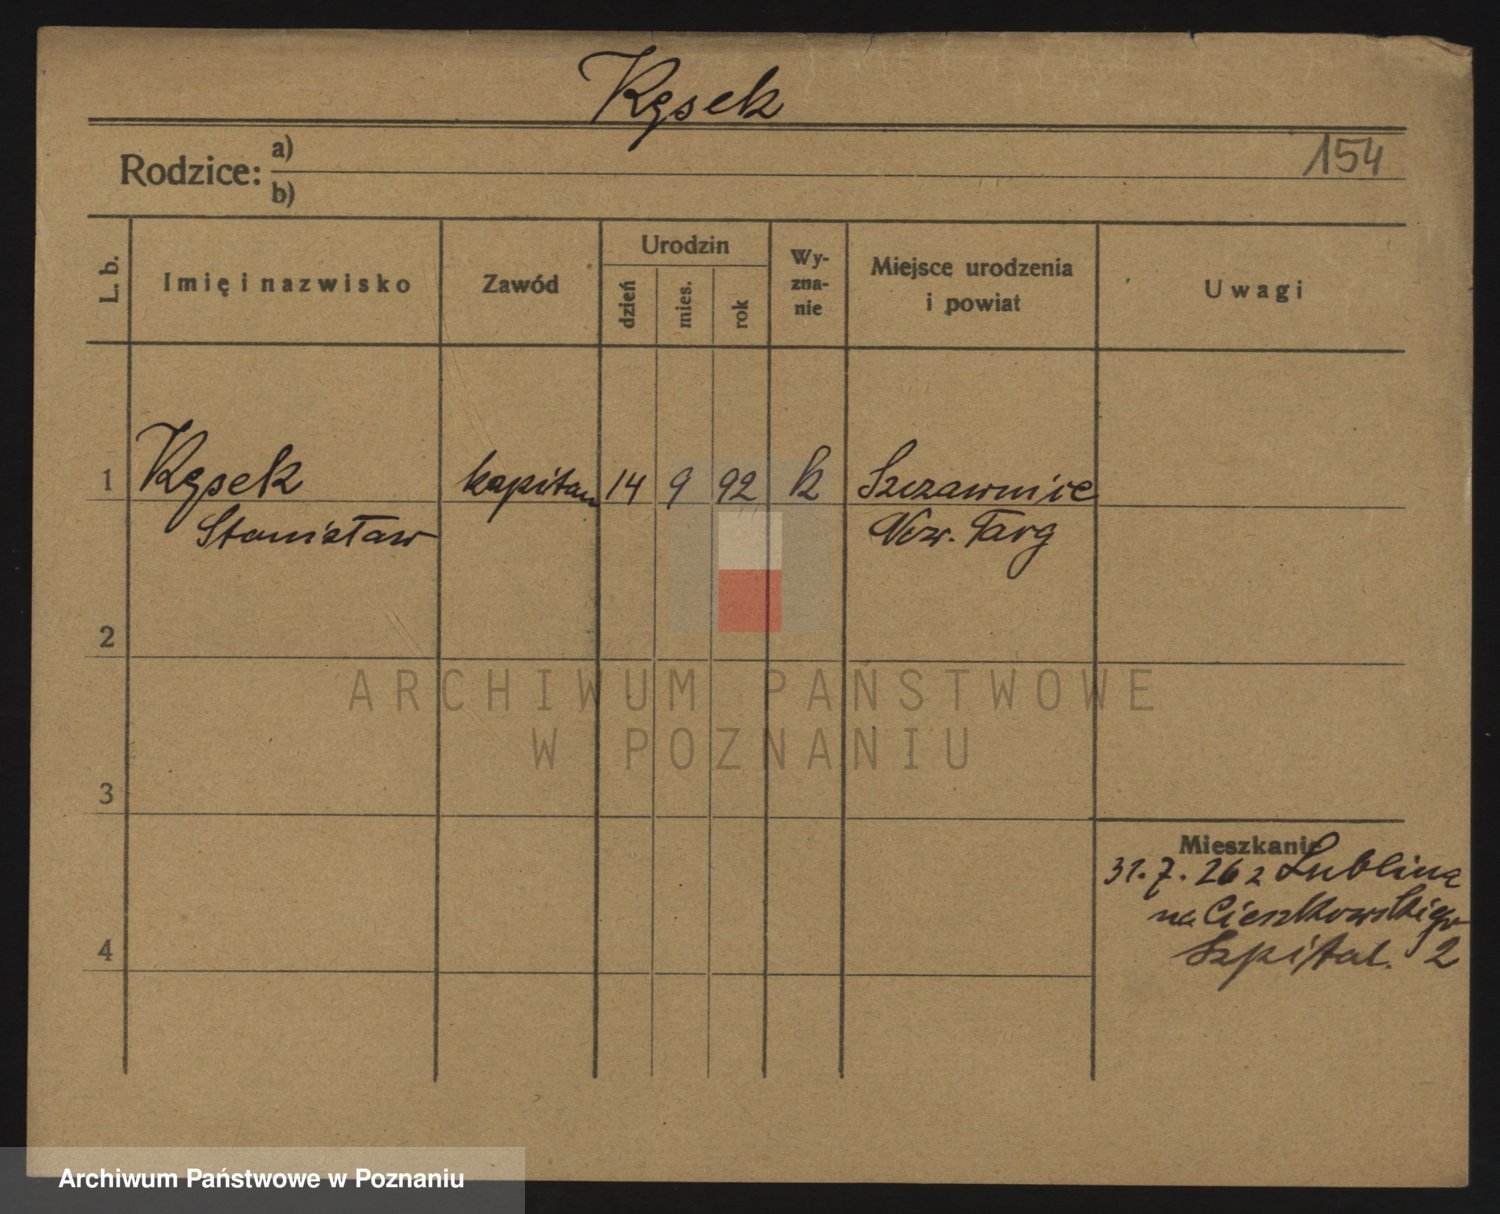 Kęsek
154
Rodzice: a)
b)
L. b.
Imię i nazwisko
Zawód
Urodzin
dzień
mies.
rok
Wy-
zna-
nie
Miejsce urodzenia
i powiat
Uwagi
1 Kęsek kapitan 14 9 92 k Szczawnice
Stanisław Now. Targ
2
ARCHIWUM PAŃSTWOWE
W POZNANIU
3
Mieszkanie
31. 7. 26 z Lublina
na Cieszkowskiego
Szpital. 2
4
Archiwum Państwowe w Poznaniu